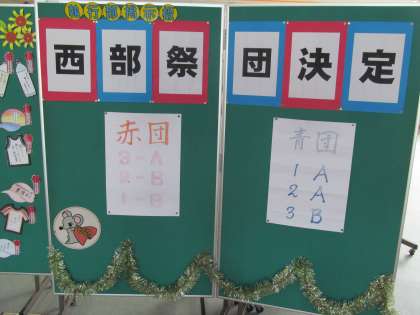 西部祭
団決定
赤団
3-A
2-B
1-B
青団
1 A
2 A
3 B